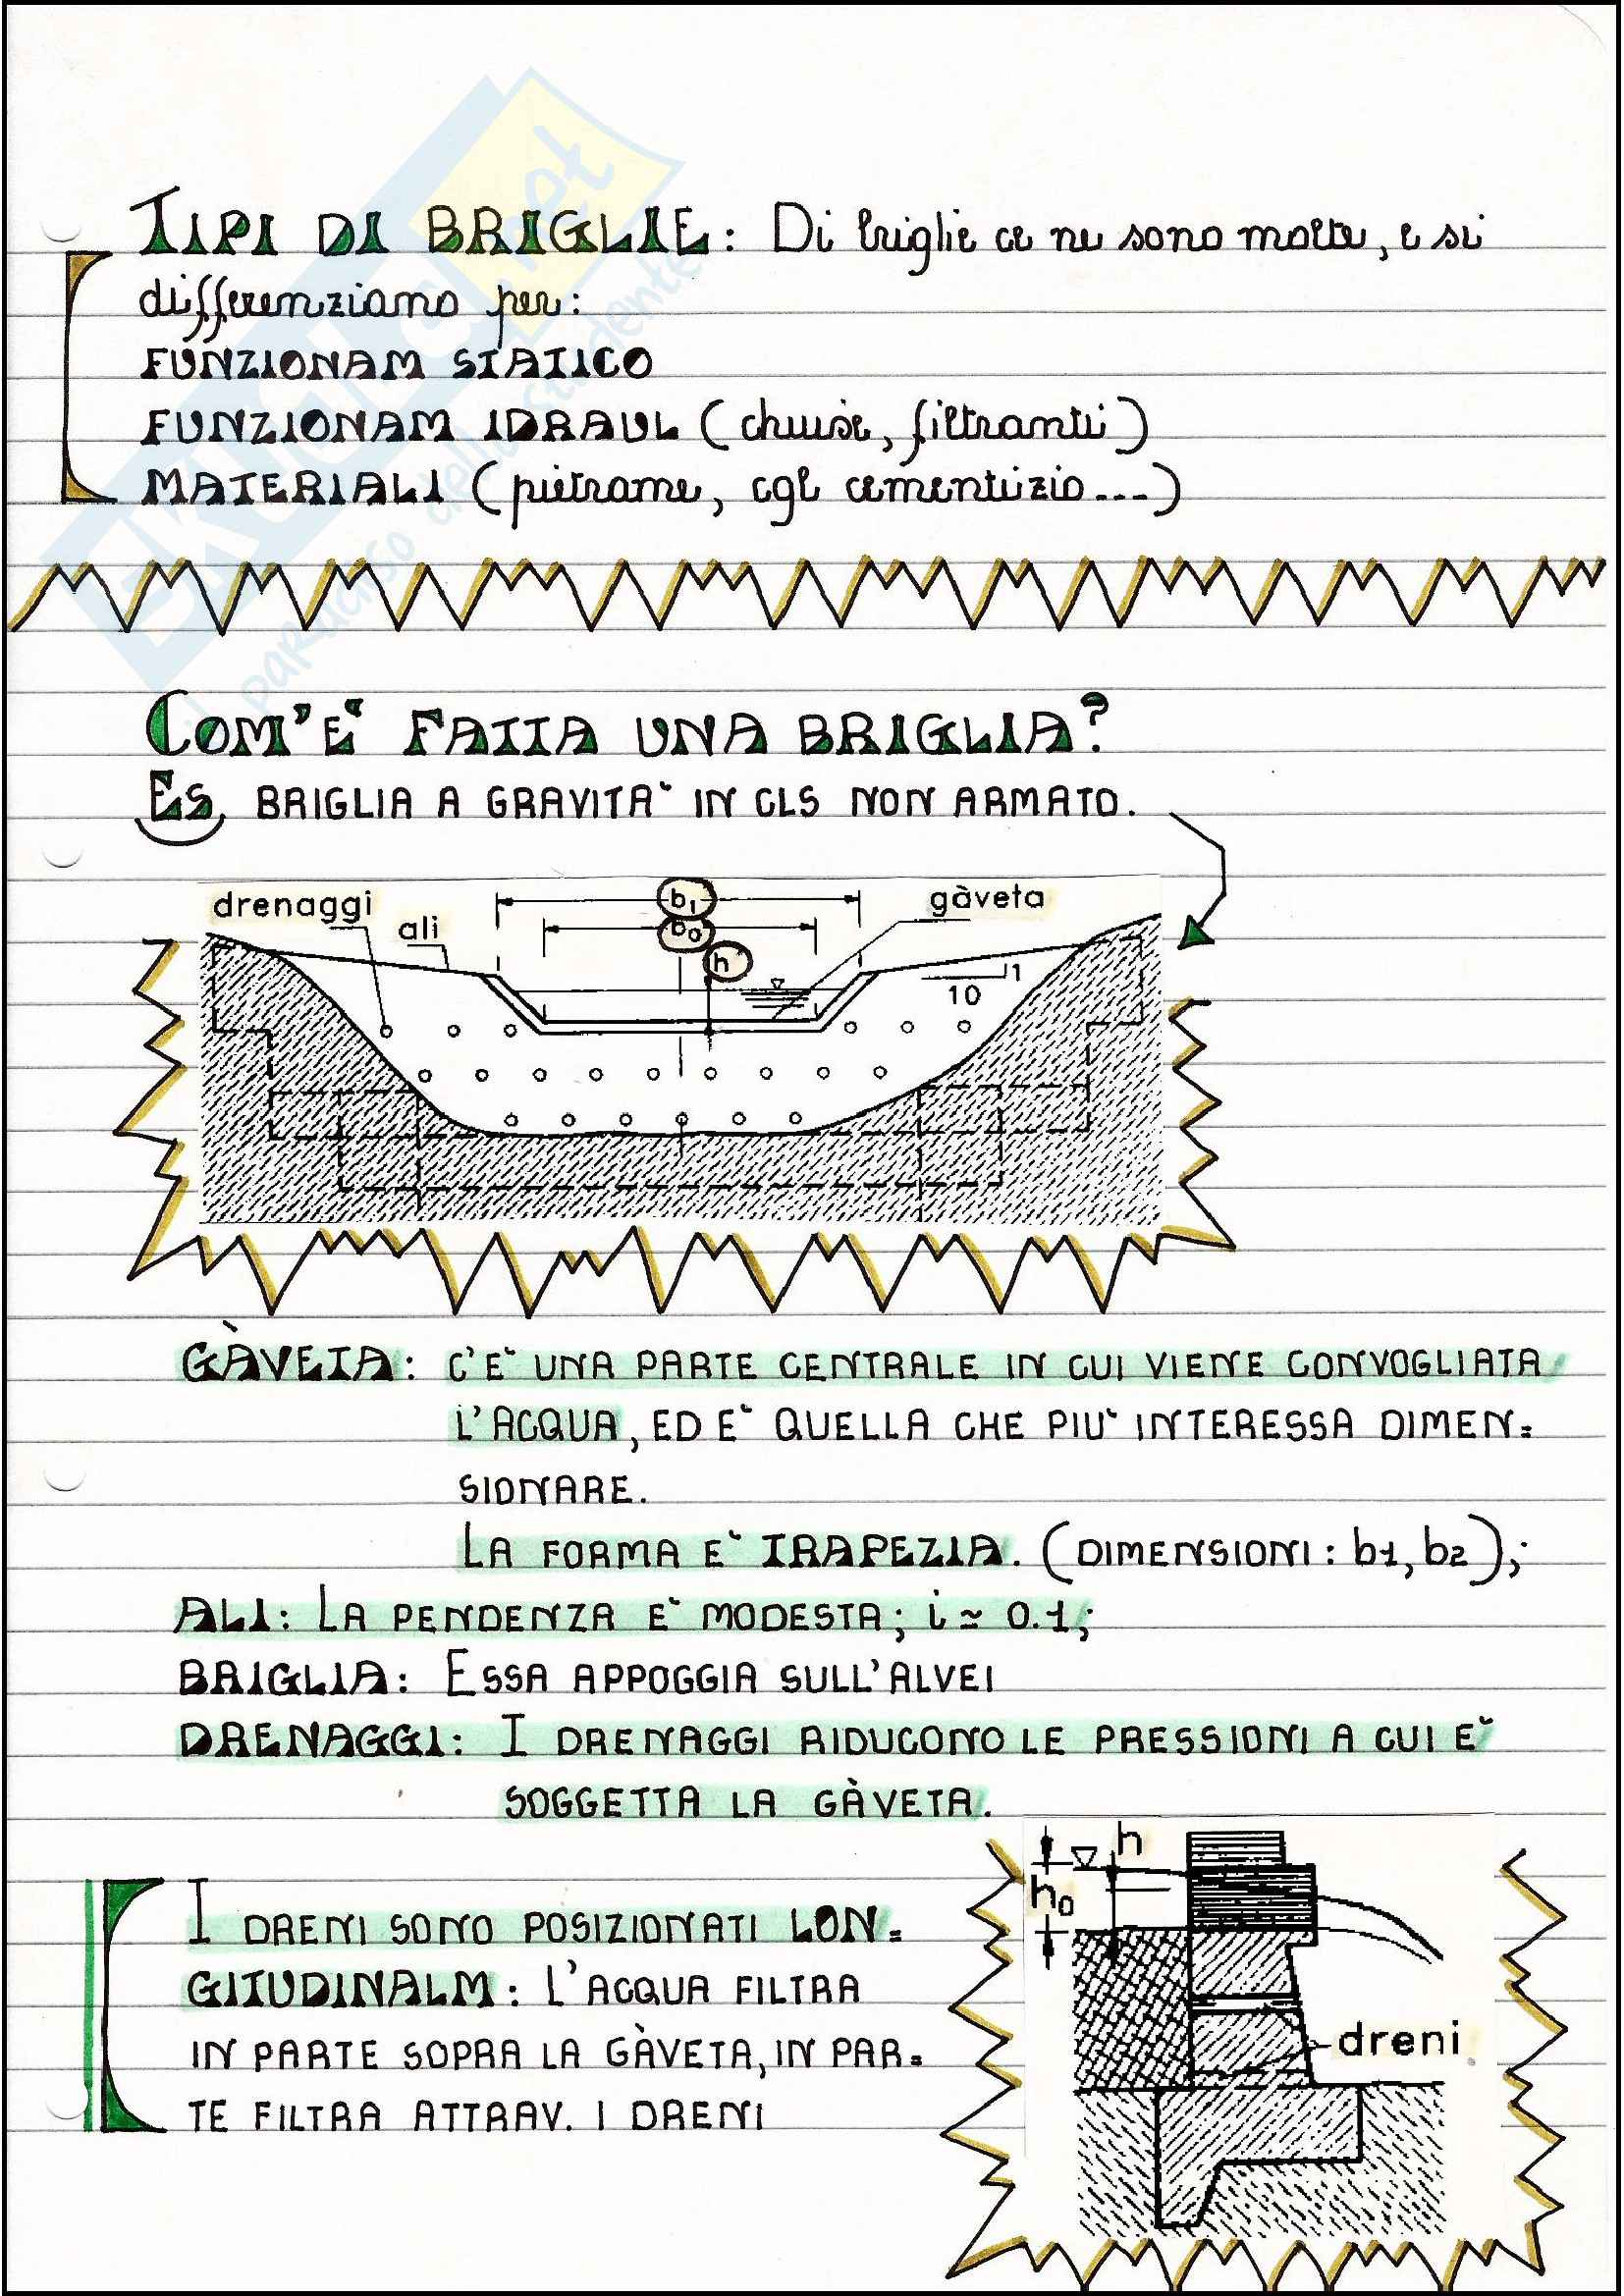 TIPI DI BRIGLIE: Di briglie ce ne sono molte, e si
differenziano per:
FUNZIONAM STATICO
FUNZIONAM IDRAUL (chiuse, filtranti)
MATERIALI (pietrame, cgl cementizio...)
COM'E' FATTA UNA BRIGLIA?
ES. BRIGLIA A GRAVITA' IN CLS NON ARMATO.
drenaggi
ali
b1
b0
h
gàveta
1
10
GÀVETA: C'E' UNA PARTE CENTRALE IN CUI VIENE CONVOGLIATA
L'ACQUA, ED E' QUELLA CHE PIU' INTERESSA DIMEN=
SIONARE.
LA FORMA E' TRAPEZIA. (DIMENSIONI: b1, b2);
ALI: LA PENDENZA E' MODESTA; i ≃ 0.1;
BRIGLIA: ESSA APPOGGIA SULL'ALVEI
DRENAGGI: I DRENAGGI RIDUCONO LE PRESSIONI A CUI E'
SOGGETTA LA GÀVETA.
h
h0
dreni
I DRENI SONO POSIZIONATI LON=
GITUDINALM: L'ACQUA FILTRA
IN PARTE SOPRA LA GÀVETA, IN PAR=
TE FILTRA ATTRAV. I DRENI